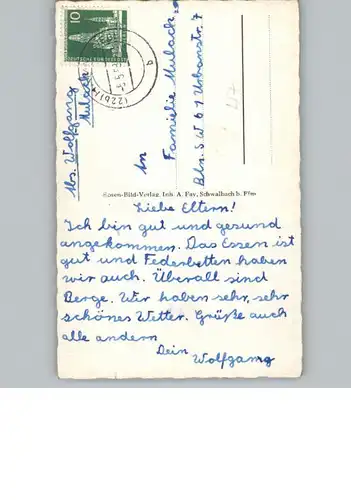 10
(22b)
Abs. Wolfgang
Mulack
An
Familie Mulack
Bln. SW 61 Urbanstr. 7
Rosen-Bild-Verlag Inh. A. Fay, Schwalbach b.
Liebe Eltern!
Ich bin gut und gesund
angekommen. Das Essen ist
gut und Federbetten haben
wir auch. Überall sind
Berge. Wir haben sehr, sehr
schönes Wetter. Grüße auch
alle andern
Dein
Wolfgang